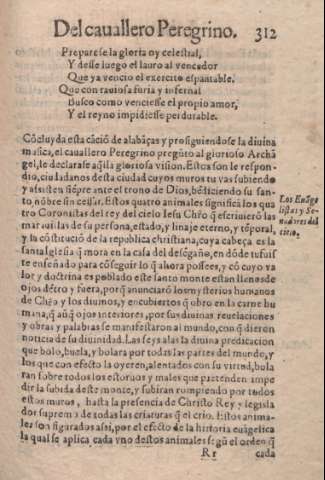 Del cauallero Peregrino. 312
Preparese la gloria oy celestial,
Y desse luego el lauro al vencedor
Que ya vencio el exercito espantable.
Que con rauiosa furia y infernal
Busco como venciesse el propio amor,
Y el reyno impidiesse perdurable.
Cõcluyda esta cãciõ de alabãças y prosiguiendose la diuina
musica, el cauallero Peregrino pregũto al glorioso Archã
gel, le declarase aq̃lla gloriosa vision. Estos son le respon-
dio, ciudadanos desta ciudad cuyos muros tu vas subiendo
y assisten siẽpre ante el trono de Dios, bẽdiciendo su san-
to nõbre sin cessar. Estos quatro animales significã los qua
tro Coronistas del rey del cielo Iesu Chr̃o q̃ escriuierõ las
marauillas de su persona, estado, y linaje eterno, y tẽporal,
y la cõstituciõ de la republica christiana, cuya cabeça es la
santa Iglesia q̃ mora en la casa del desẽgaño, en dõde tu fuis
te enseñado para cõseguir lo q̃ ahora possees, y cõ cuyo va
lor y doctrina es poblado este santo monte estan llenos de
ojos dẽtro y fuera, porq̃ anunciarõ los mysterios humanos
de Chr̃o y los diuinos, y encubiertos q̃ obro en la carne hu
mana, q̃ aũq̃ ojos interiores, por sus diuinas reuelaciones
y obras y palabras se manifestaron al mundo, con q̃ dieron
noticia de su diuinidad. Las seys alas la diuina predicacion
que bolo, buela, y bolara por todas las partes del mundo, y
los que con efecto la oyeren, alentados con su virtud, bola
ran sobre todos los estoruos y males que pretenden impe
dir la subida deste monte, y subiran rompiendo por todos
estos muros, hasta la presencia de Christo Rey y legisla
dor supremo de todas las criaturas q̃ el crio. Estos anima-
les son figurados assi, por el efecto de la historia euãgelica
la qual se aplica cada vno destos animales segũ el orden q̃
Rr cada
Los Euãge
listas y Se-
nadores del
cielo.